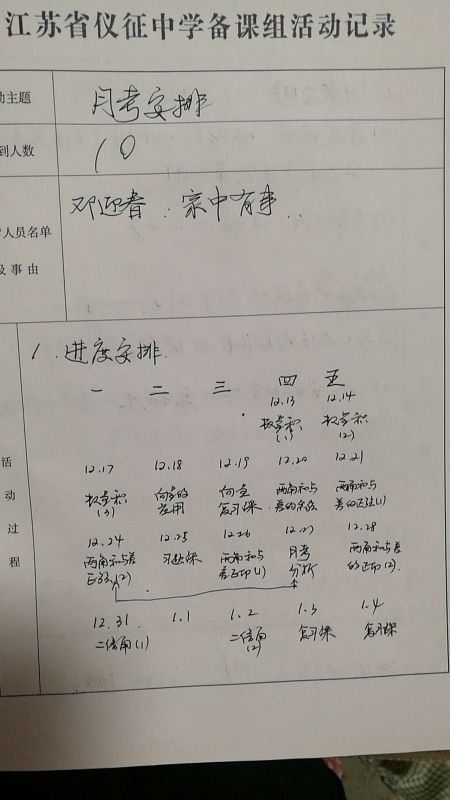 江苏省仪征中学备课组活动记录
动主题 月考安排
到人数 10
人员名单 邓迎春.家中有事..
及事由
活动过程
1.进度安排.
一 二 三 四 五
12.13 12.14
数量积(1) 数量积(2)
12.17 12.18 12.19 12.20 12.21
数量积(3) 向量的应用 向量复习课 两角和与差的余弦 两角和与差的正弦(1)
12.24 12.25 12.26 12.27 12.28
两角和与差正弦(2) 习题课 两角和与差正切(1) 月考分析 两角和与差的正切(2).
12.31. 1.1 1.2 1.3 1.4
二倍角(1) 二倍角(2) 复习课 复习课